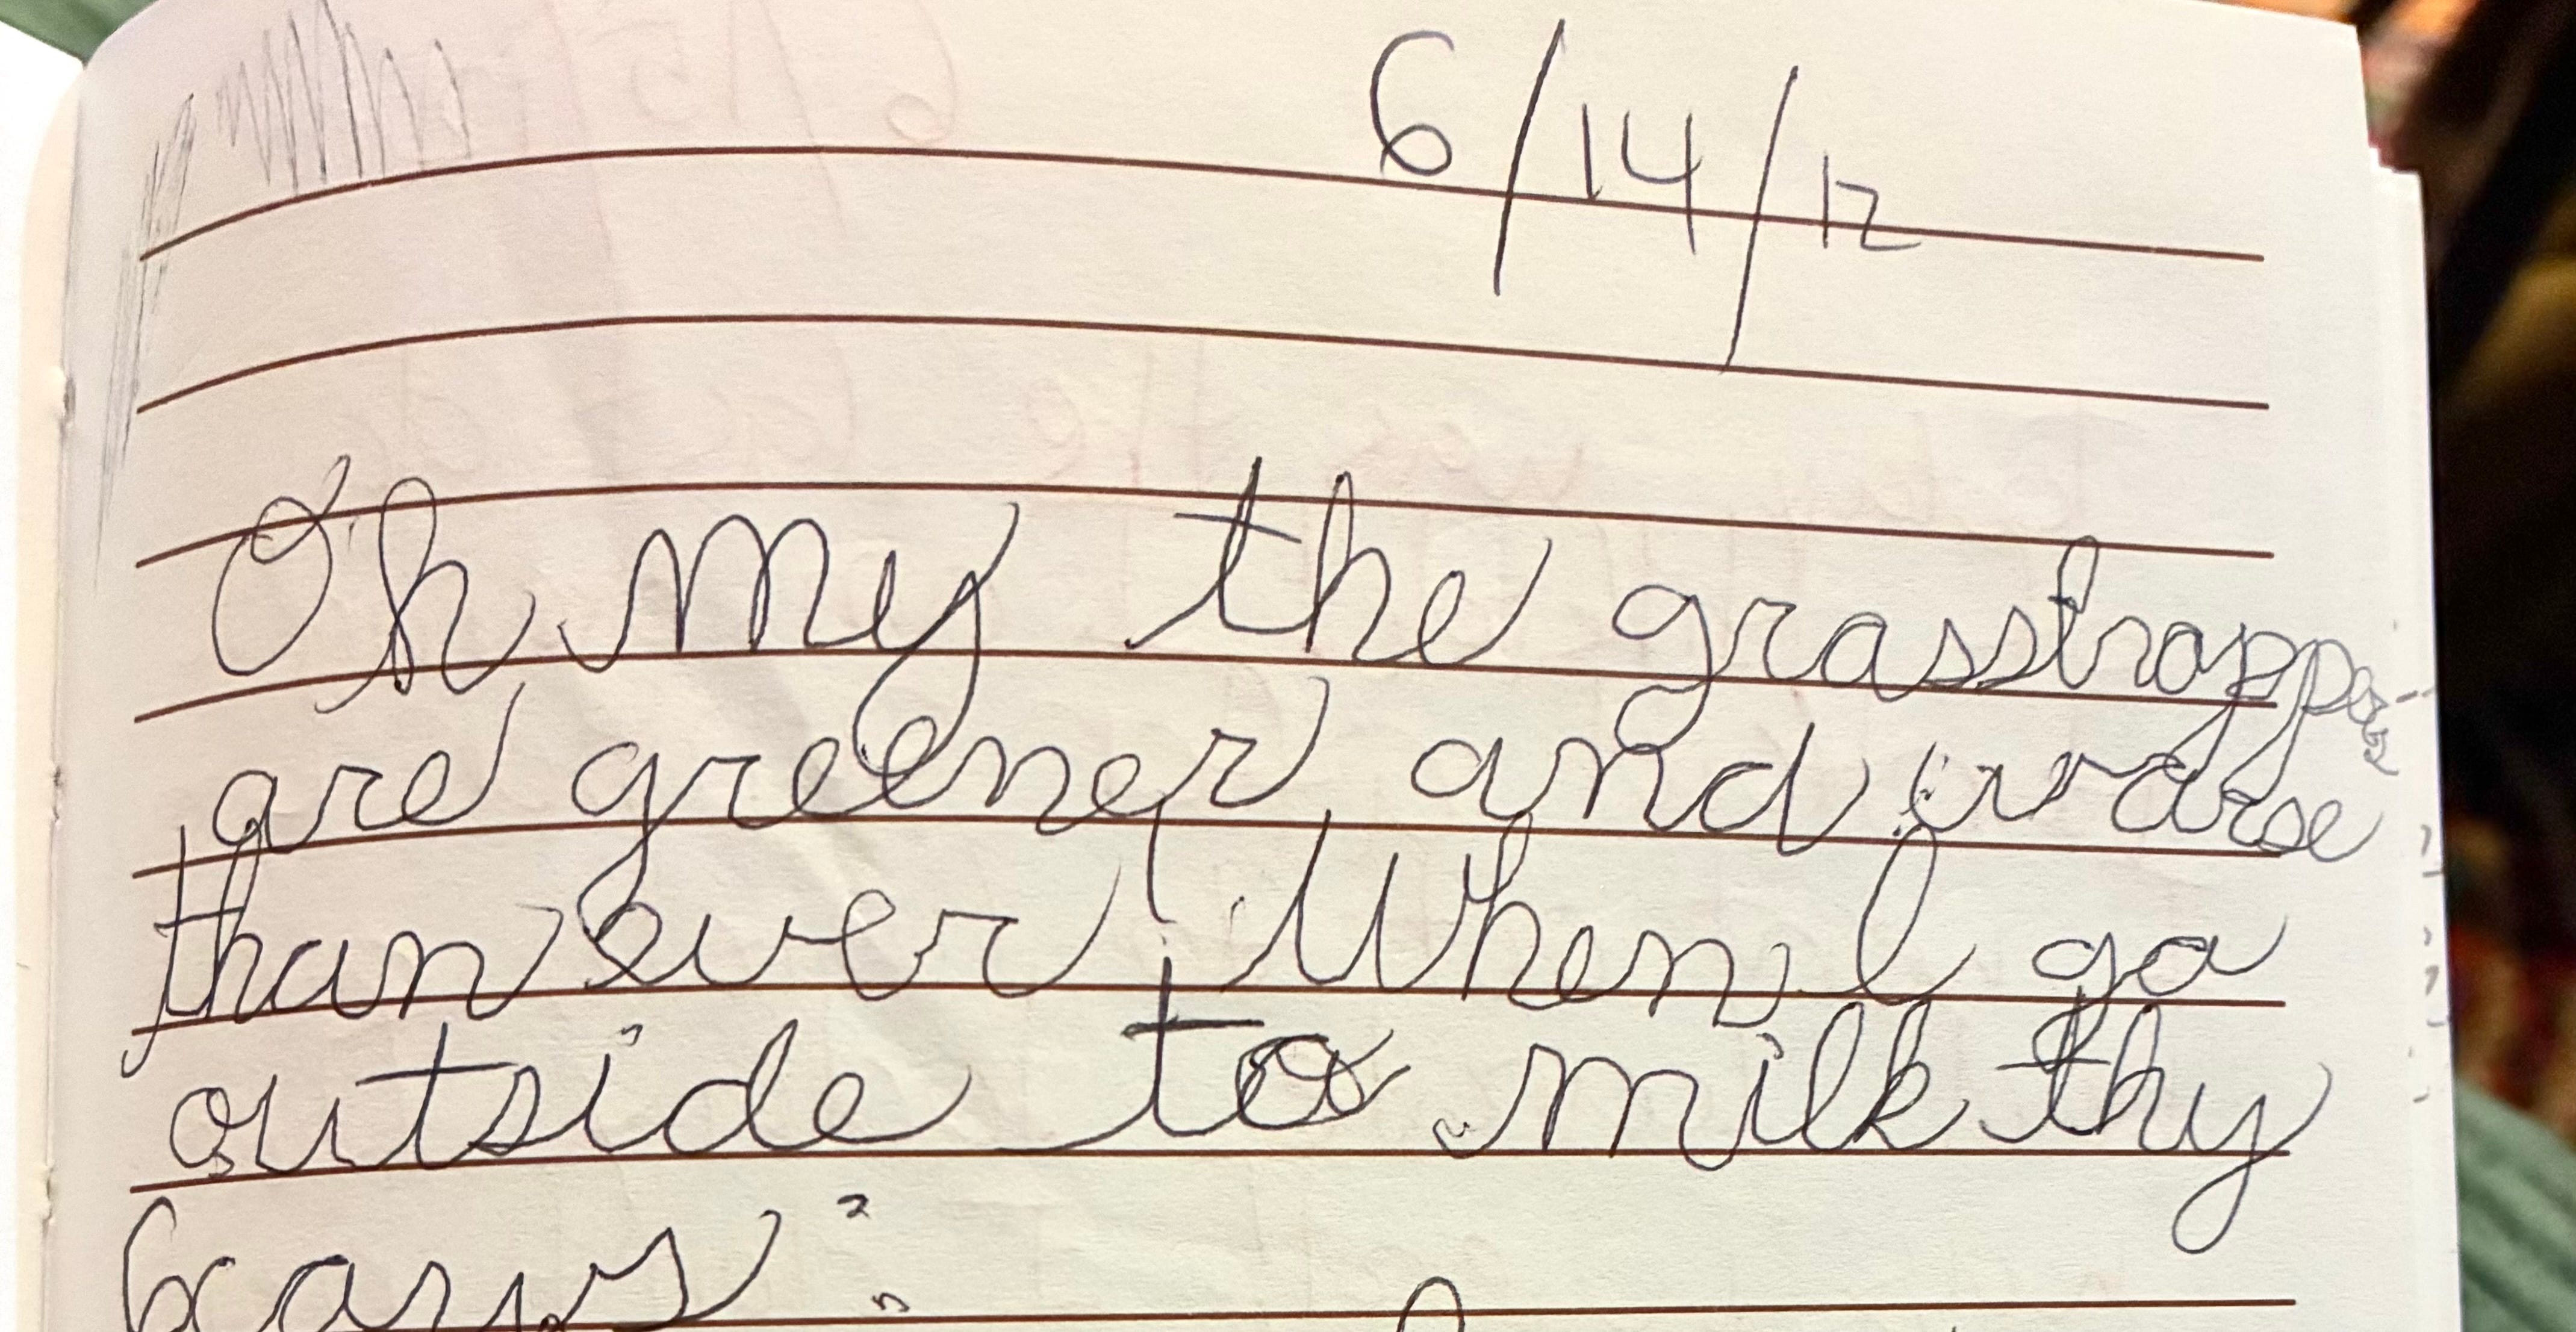 6/14/12
Oh my the grasshoppers
are greener and worse
than ever! When I go
outside to milk thy
cows